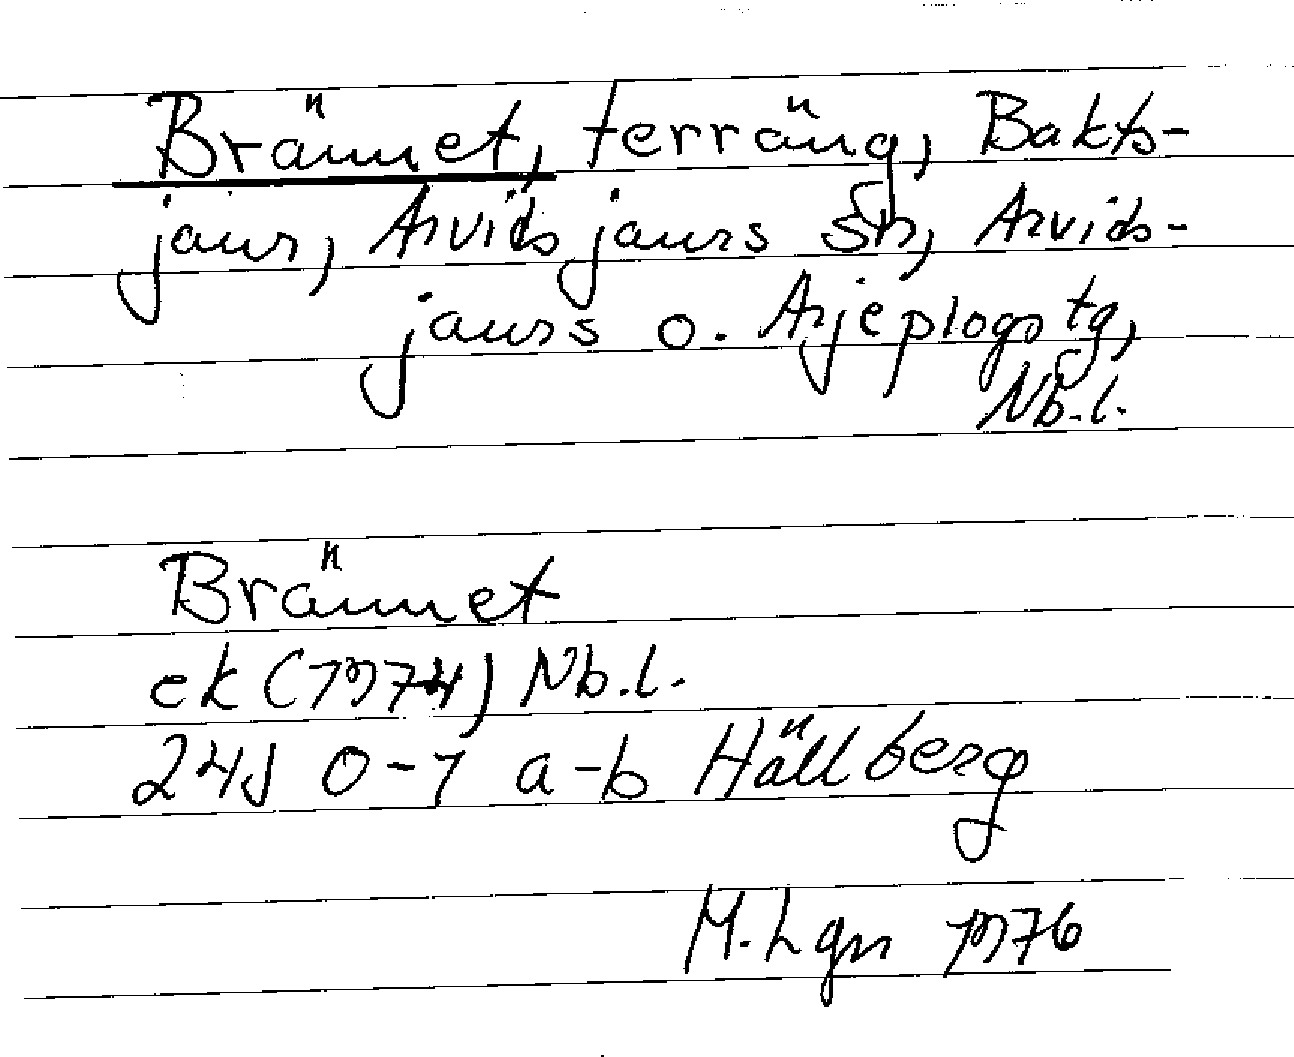 Brännet, terräng, Bakts-
jaur, Arvidsjaurs sn, Arvids-
jaurs o. Arjeplogs tg,
Nb.l.
Brännet
ek (1974) Nb.l.
24J 0-1 a-b Hällberg
M. Lgn 1976